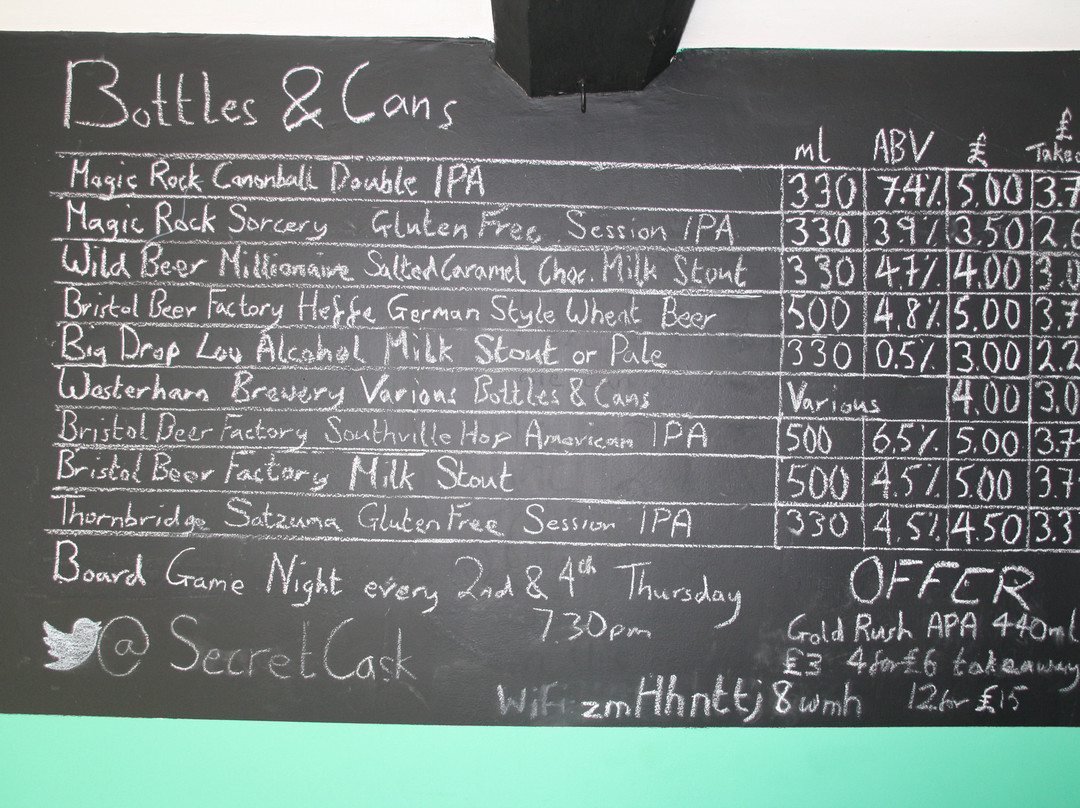 Bottles & Cans
ml ABV £ £
Magic Rock Cannonball Double IPA 330 7.4% 5.00 3.7
Magic Rock Sorcery Gluten Free Session IPA 330 3.9% 3.50 2.6
Wild Beer Millionaire Salted Caramel Choc. Milk Stout 330 4.7% 4.00 3.0
Bristol Beer Factory Heffe German Style Wheat Beer 500 4.8% 5.00 3.7
Big Drop Low Alcohol Milk Stout or Pale 330 0.5% 3.00 2.2
Westerham Brewery Various Bottles & Cans Various 4.00 3.0
Bristol Beer Factory Southville Hop American IPA 500 6.5% 5.00 3.7
Bristol Beer Factory Milk Stout 500 4.5% 5.00 3.7
Thornbridge Satzuma Gluten Free Session IPA 330 4.5% 4.50 3.3
Board Game Night every 2nd & 4th Thursday
7.30pm
@SecretCask
OFFER
Gold Rush APA 440ml
£3 4 for £6 takeaway
12 for £15
WiFi: zmHhnttj8wmh